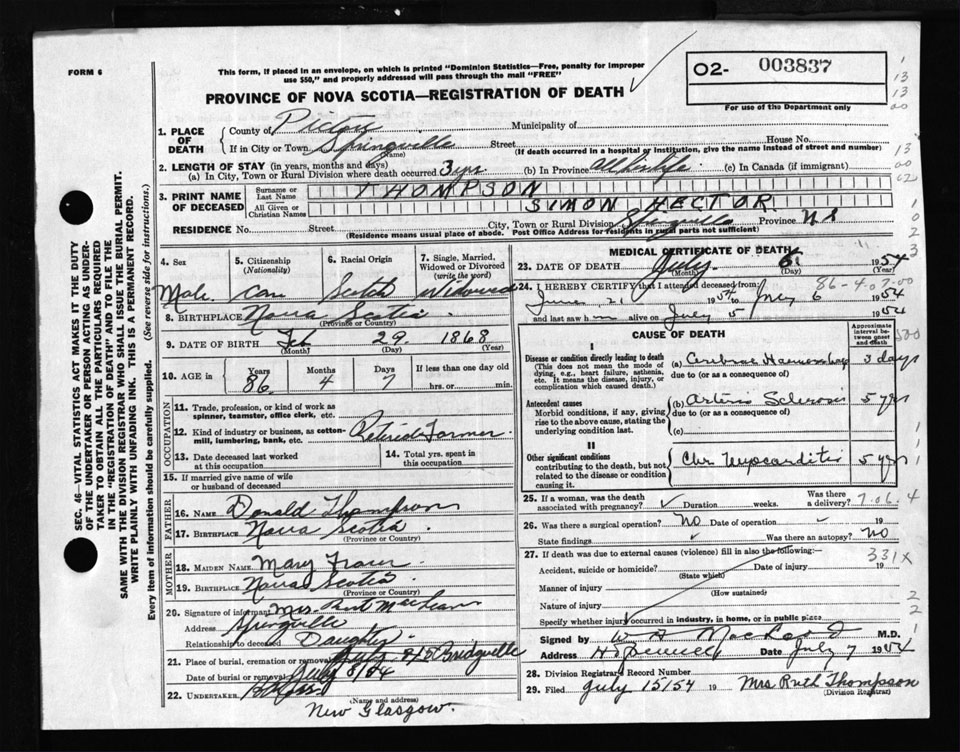 FORM 6
This form, if placed in an envelope, on which is printed "Dominion Statistics—Free, penalty for improper
use $50," and properly addressed will pass through the mail "FREE"
PROVINCE OF NOVA SCOTIA—REGISTRATION OF DEATH
02- 003837
For use of the Department only
1. PLACE OF DEATH
County of Pictou Municipality of
If in City or Town Springville Street House No.
(Name) (If death occurred in a hospital or institution, give the name instead of street and number)
2. LENGTH OF STAY (in years, months and days)
(a) In City, Town or Rural Division where death occurred 3 yrs (b) In Province all his life (c) In Canada (if immigrant)
3. PRINT NAME OF DECEASED
Surname or Last Name THOMPSON
All Given or Christian Names SIMON HECTOR
RESIDENCE No. Street City, Town or Rural Division Springville Province N S
(Residence means usual place of abode. Post Office Address for residents in rural parts not sufficient)
4. Sex
Male
5. Citizenship
(Nationality)
Can
6. Racial Origin
Scotch
7. Single, Married, Widowed or Divorced
(write the word)
Widowed
8. BIRTHPLACE Nova Scotia
(Province or Country)
9. DATE OF BIRTH Feb 29 1868
(Month) (Day) (Year)
10. AGE in Years Months Days If less than one day old
86 4 7 hrs. or min.
OCCUPATION
11. Trade, profession, or kind of work as
spinner, teamster, office clerk, etc.
12. Kind of industry or business, as cotton-
mill, lumbering, bank, etc. Retired Farmer
13. Date deceased last worked
at this occupation
14. Total yrs. spent in
this occupation
15. If married give name of wife
or husband of deceased
FATHER
16. Name Donald Thompson
17. Birthplace Nova Scotia
(Province or Country)
MOTHER
18. MAIDEN NAME Mary Fraser
19. BIRTHPLACE Nova Scotia
(Province or Country)
20. Signature of informant Mrs. MacLean
Address Springville
Relationship to deceased Daughter
21. Place of burial, cremation or removal Bridgeville
Date of burial or removal July 8/54
22. UNDERTAKER
(Name and address)
New Glasgow.
MEDICAL CERTIFICATE OF DEATH
23. DATE OF DEATH July 6 1954
(Month) (Day) (Year)
86-4-07-00
24. I HEREBY CERTIFY that I attended deceased from
June 21 1954 to July 6 1954
and last saw him alive on July 5 1954
CAUSE OF DEATH
Approximate interval between onset and death
I
Disease or condition directly leading to death
(This does not mean the mode of dying, e.g., heart failure, asthenia, etc. It means the disease, injury, or complication which caused death.)
(a) Cerebral Haemorrhage 3 days
due to (or as a consequence of)
Antecedent causes
Morbid conditions, if any, giving rise to the above cause, stating the underlying condition last.
(b) Arterio Sclerosis 5 yrs
due to (or as a consequence of)
(c)
II
Other significant conditions
contributing to the death, but not related to the disease or condition causing it.
Chr Myocarditis 5 yrs
25. If a woman, was the death
associated with pregnancy? Duration weeks. Was there a delivery?
7.06.4
26. Was there a surgical operation? No Date of operation 19
State findings Was there an autopsy? No
27. If death was due to external causes (violence) fill in also the following:
331X
Accident, suicide or homicide? Date of injury 19
(State which)
Manner of injury
(How sustained)
Nature of injury
Specify whether injury occurred in industry, in home, or in public place
Signed by W A MacLeod M.D.
Address Date July 7 1954
28. Division Registrar's Record Number
29. Filed July 15/54 19 Mrs Ruth Thompson
(Division Registrar)
SEC. 46—VITAL STATISTICS ACT MAKES IT THE DUTY
OF THE UNDERTAKER OR PERSON ACTING AS UNDER-
TAKER TO OBTAIN ALL THE PARTICULARS REQUIRED
IN THE "REGISTRATION OF DEATH" AND TO FILE THE
SAME WITH THE DIVISION REGISTRAR WHO SHALL ISSUE THE BURIAL PERMIT.
WRITE PLAINLY WITH UNFADING INK. THIS IS A PERMANENT RECORD.
Every item of information should be carefully supplied. (See reverse side for instructions.)